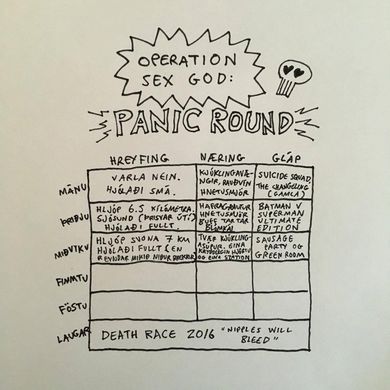 OPERATION
SEX GOD:
PANIC ROUND
HREYFING NÆRING GLÁP
MÁNU
VARLA NEIN.
HJÓLAÐI SMÁ.
KJÚKLINGAVÆ-
NGIR, RAUÐVÍN
HNETUSMJÖR
SUICIDE SQUAD,
THE CHANGELING
(GAMLA)
ÞRIÐJU
HLJÓP 6.5 KÍLÓMETRA.
SJÓSUND (ÞRISVAR ÚTÍ)
HJÓLAÐI FULLT.
HAFRAGRAUTUR
HNETUSMJÖR
BUFF TARTAR
BLÓMKÁL
BATMAN V
SUPERMAN
ULTIMATE
EDITION
MIÐVIKU
HLJÓP SVONA 7 KM
HJÓLAÐI FULLT (EN
MIKIÐ NIÐUR
TVÆR KJÚKLING-
ASÚPUR. EINA
OG EINA STATION
SAUSAGE
PARTY OG
GREEN ROOM
FIMMTU
FÖSTU
LAUGAR
DEATH RACE 2016 "NIPPLES WILL
BLEED"